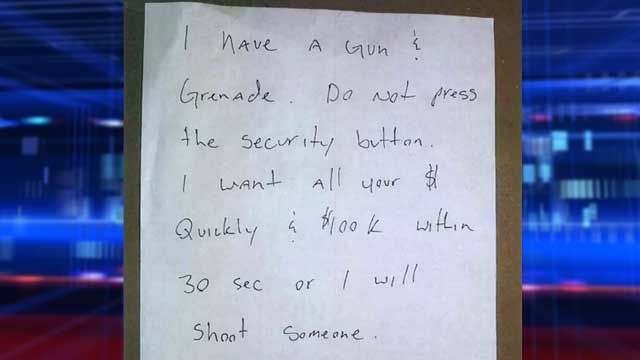 I HAVE A GUN &
GRENADE. DO NOT press
the security button.
I WANT all your $
Quickly & $100K within
30 sec or I will
Shoot someone.